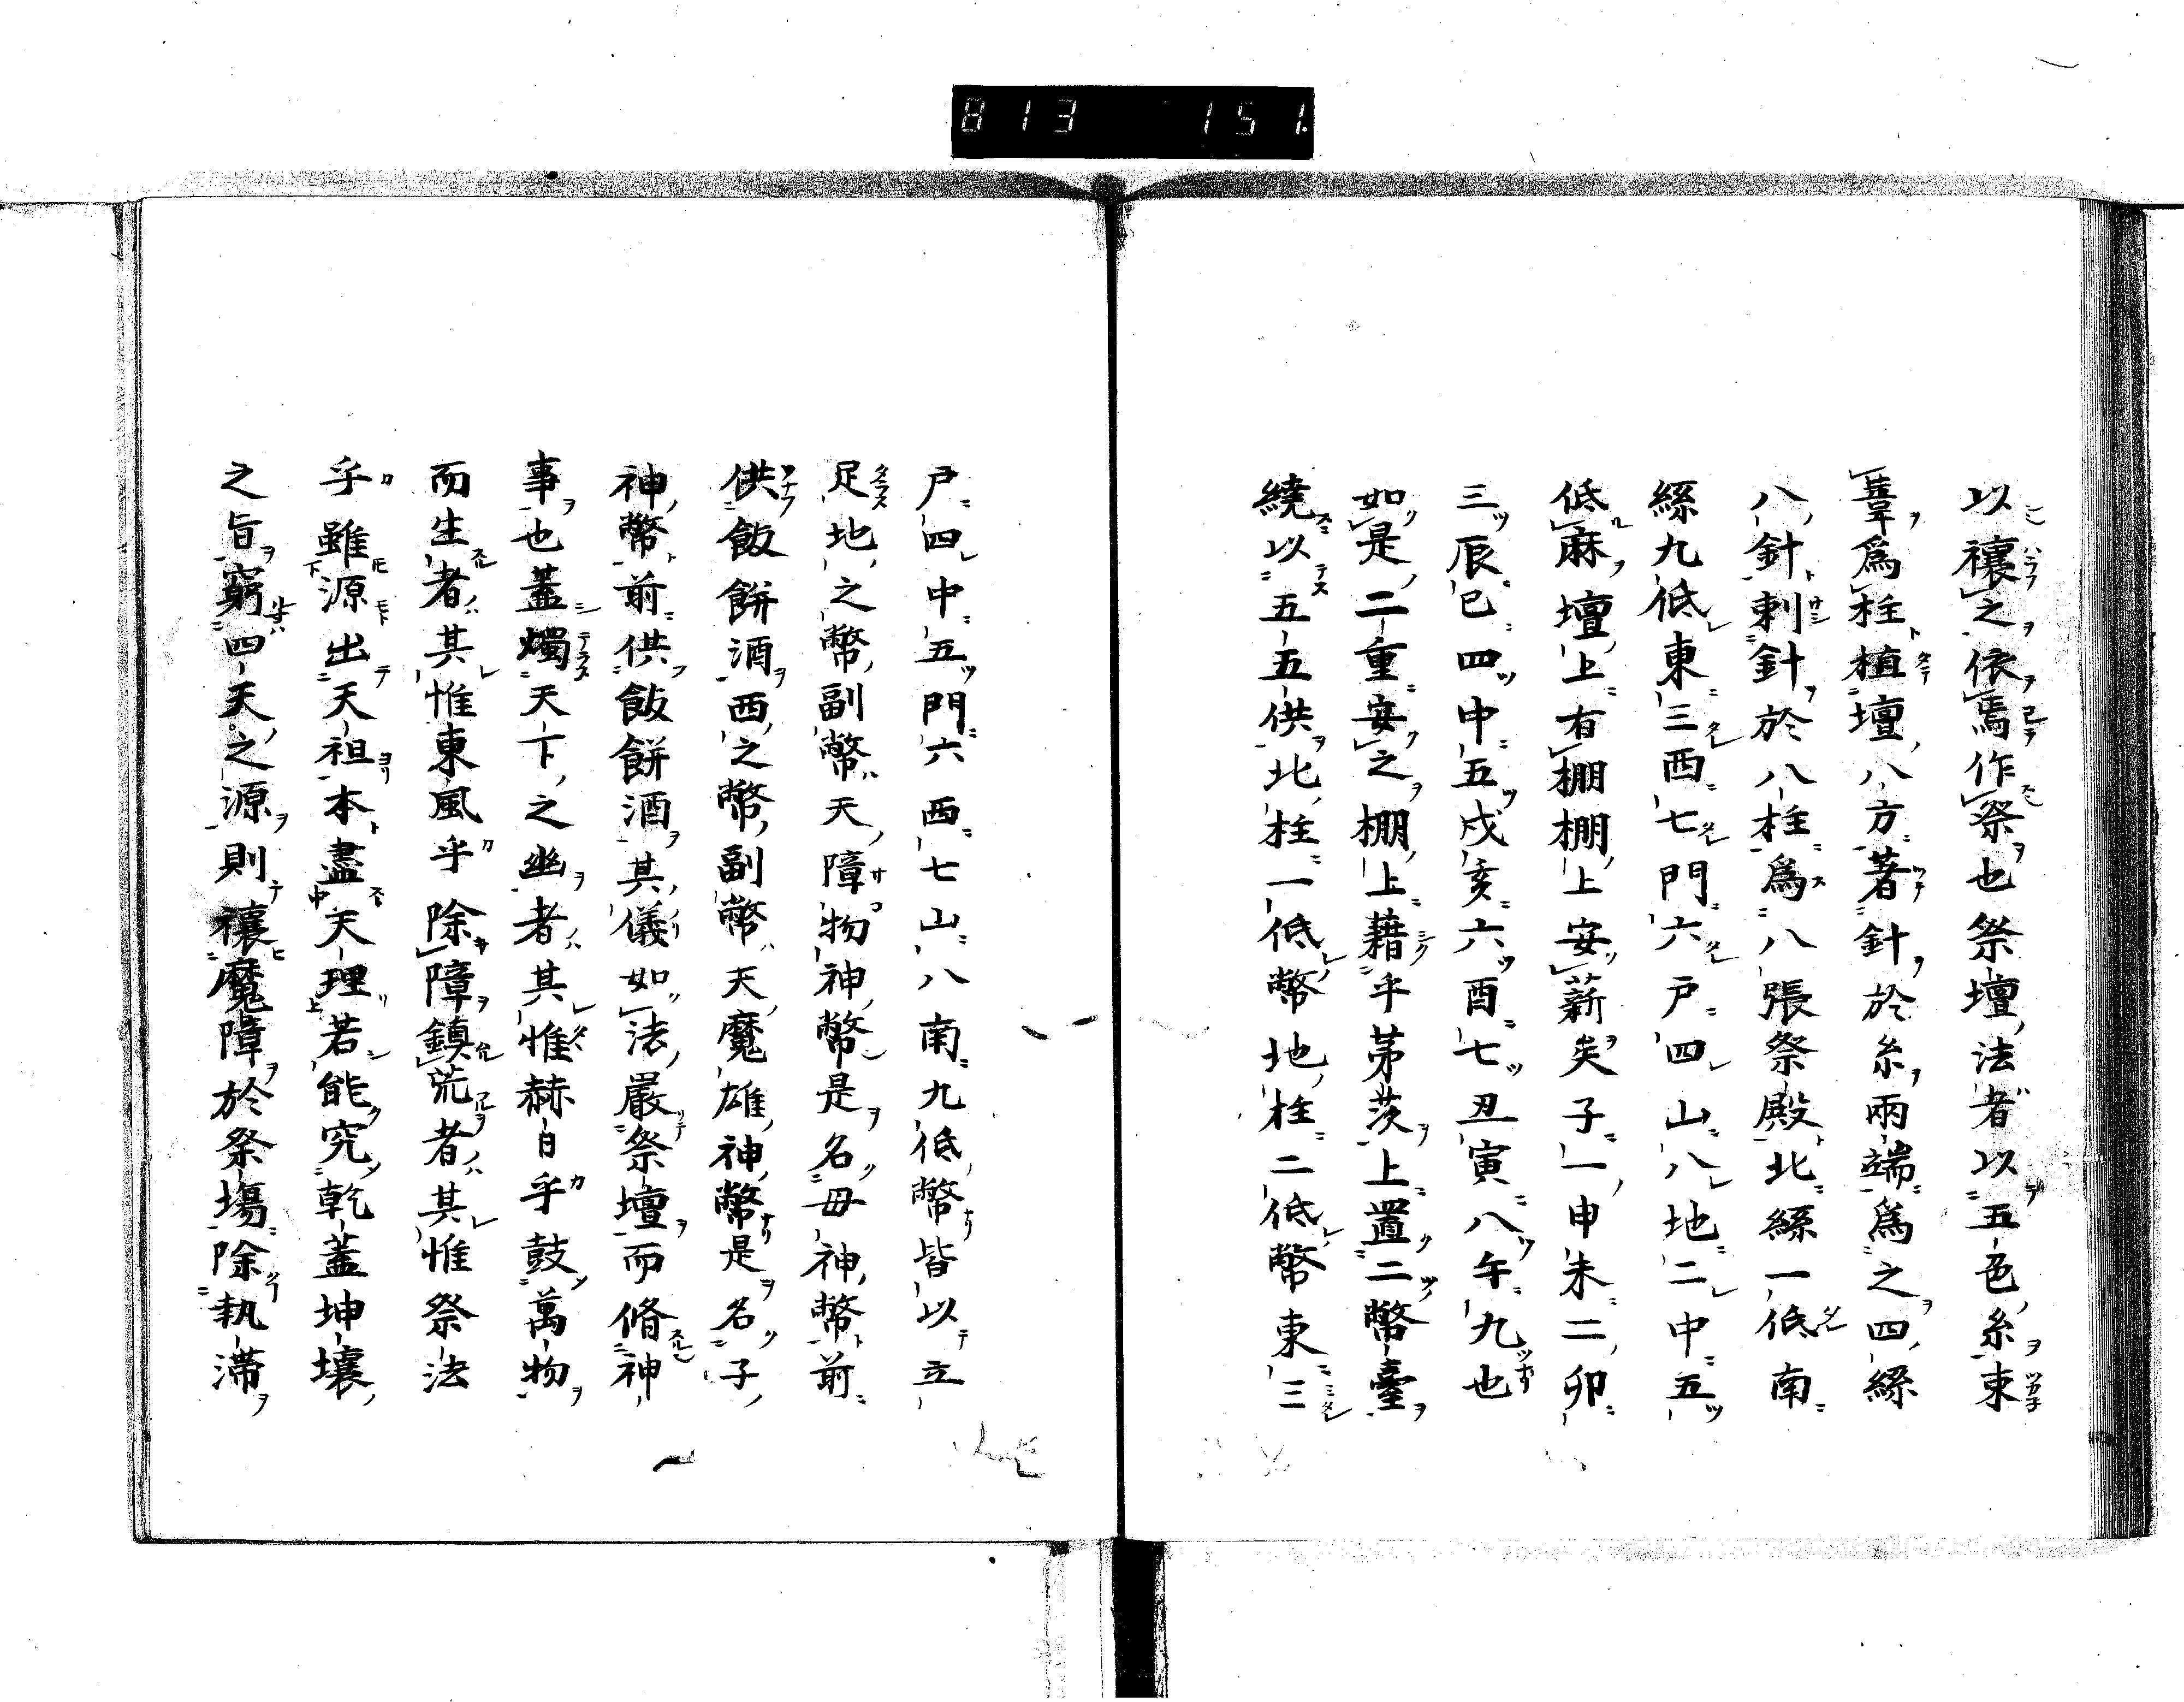 813 151.
以禳之依焉作祭也祭壇法者以五色糸束
葦爲柱植壇八方著針於糸兩端爲之四繇
八針刺針於八柱爲八張祭殿北繇一低南
繇九低東三西七門六戸四山八地二中五
低麻壇上有棚棚上安薪矣子一申未二卯
三辰巳四中五戌亥六酉七丑寅八午九也
如是二重安之棚上藉乎茅茨上置二幣臺
繞以五五供北柱一低幣地柱二低幣東三
戸四中五門六西七山八南九低幣皆以立
足地之幣副幣天障物神幣是名毋神幣前
供飯餅酒西之幣副幣天魔雄神幣是名子
神幣前供飯餅酒其儀如法嚴祭壇而脩神
事也蓋燭天下之幽者其惟赫日乎鼓萬物
而生者其惟東風乎除障鎮荒者其惟祭法
乎雖源出天祖本盡天理若能究乾蓋坤壤
之旨窮四天之源則禳魔障於祭塲除執滞